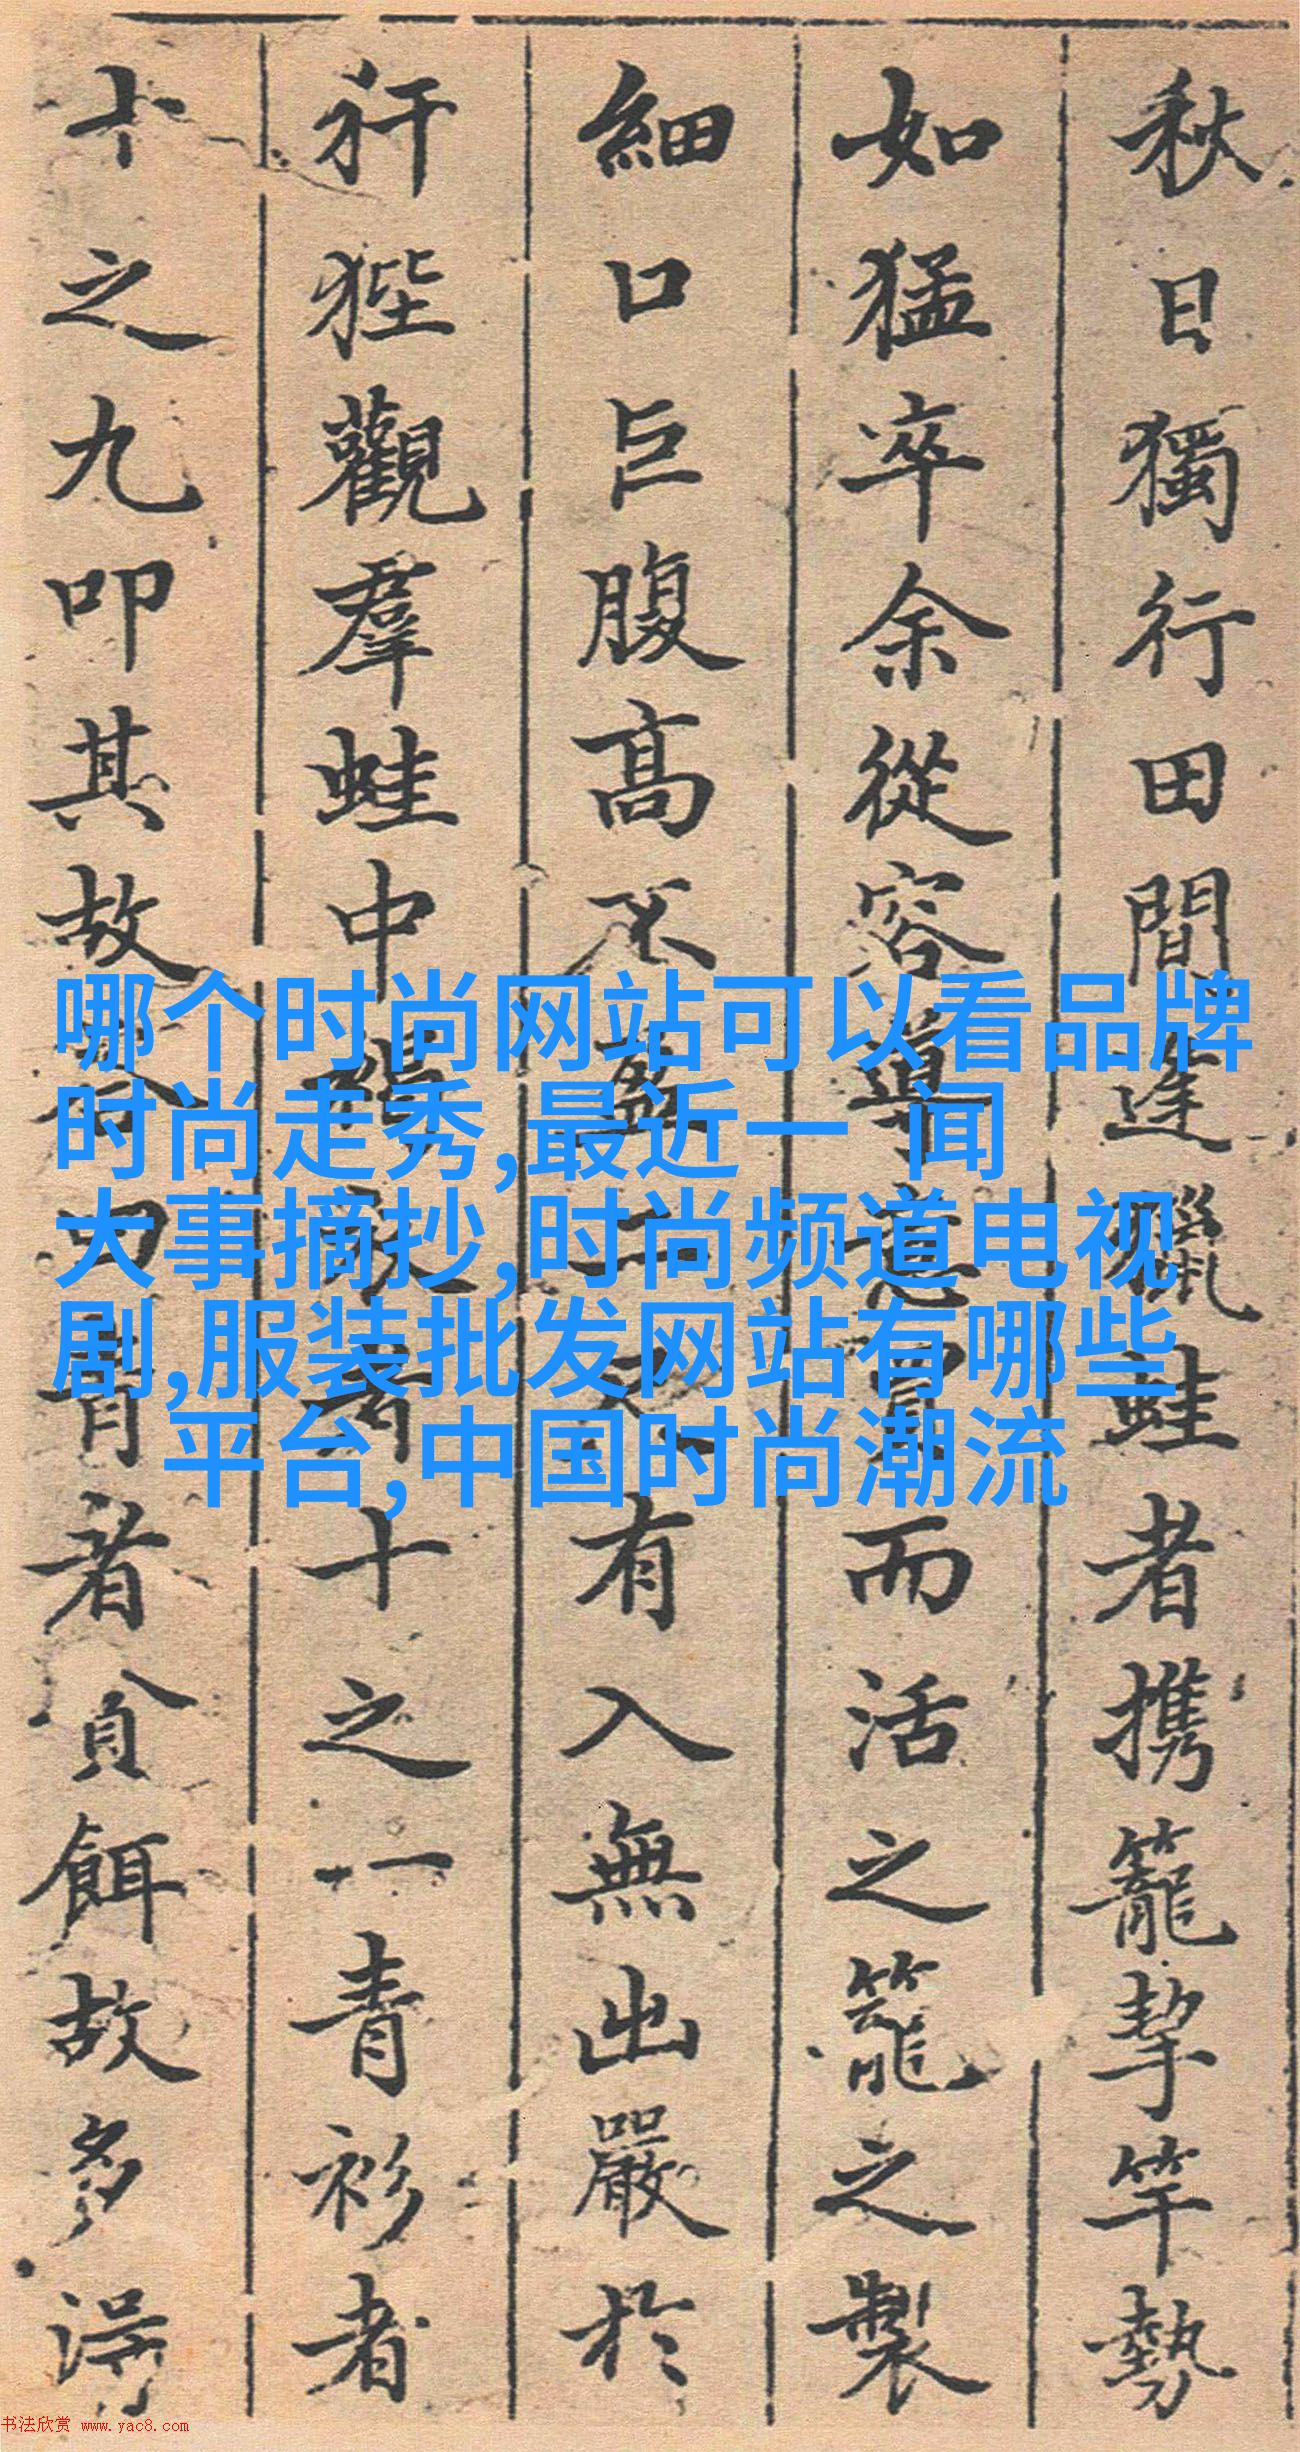 秋日獨行田間逢獵蛙者携籠挈竿勢
如猛卒余從容導意而活之籠之製
細口巨腹高不盈二有入無出嚴於
犴狴觀羣蛙中褐者十之一青衫者
十之九叩其故答曰青者貪餌故多淂
哪个时尚网站可以看品牌
时尚走秀,最近一 闻
大事摘抄,时尚频道电视
剧,服装批发网站有哪些
平台,中国时尚潮流
书法欣赏 www.yac8.com